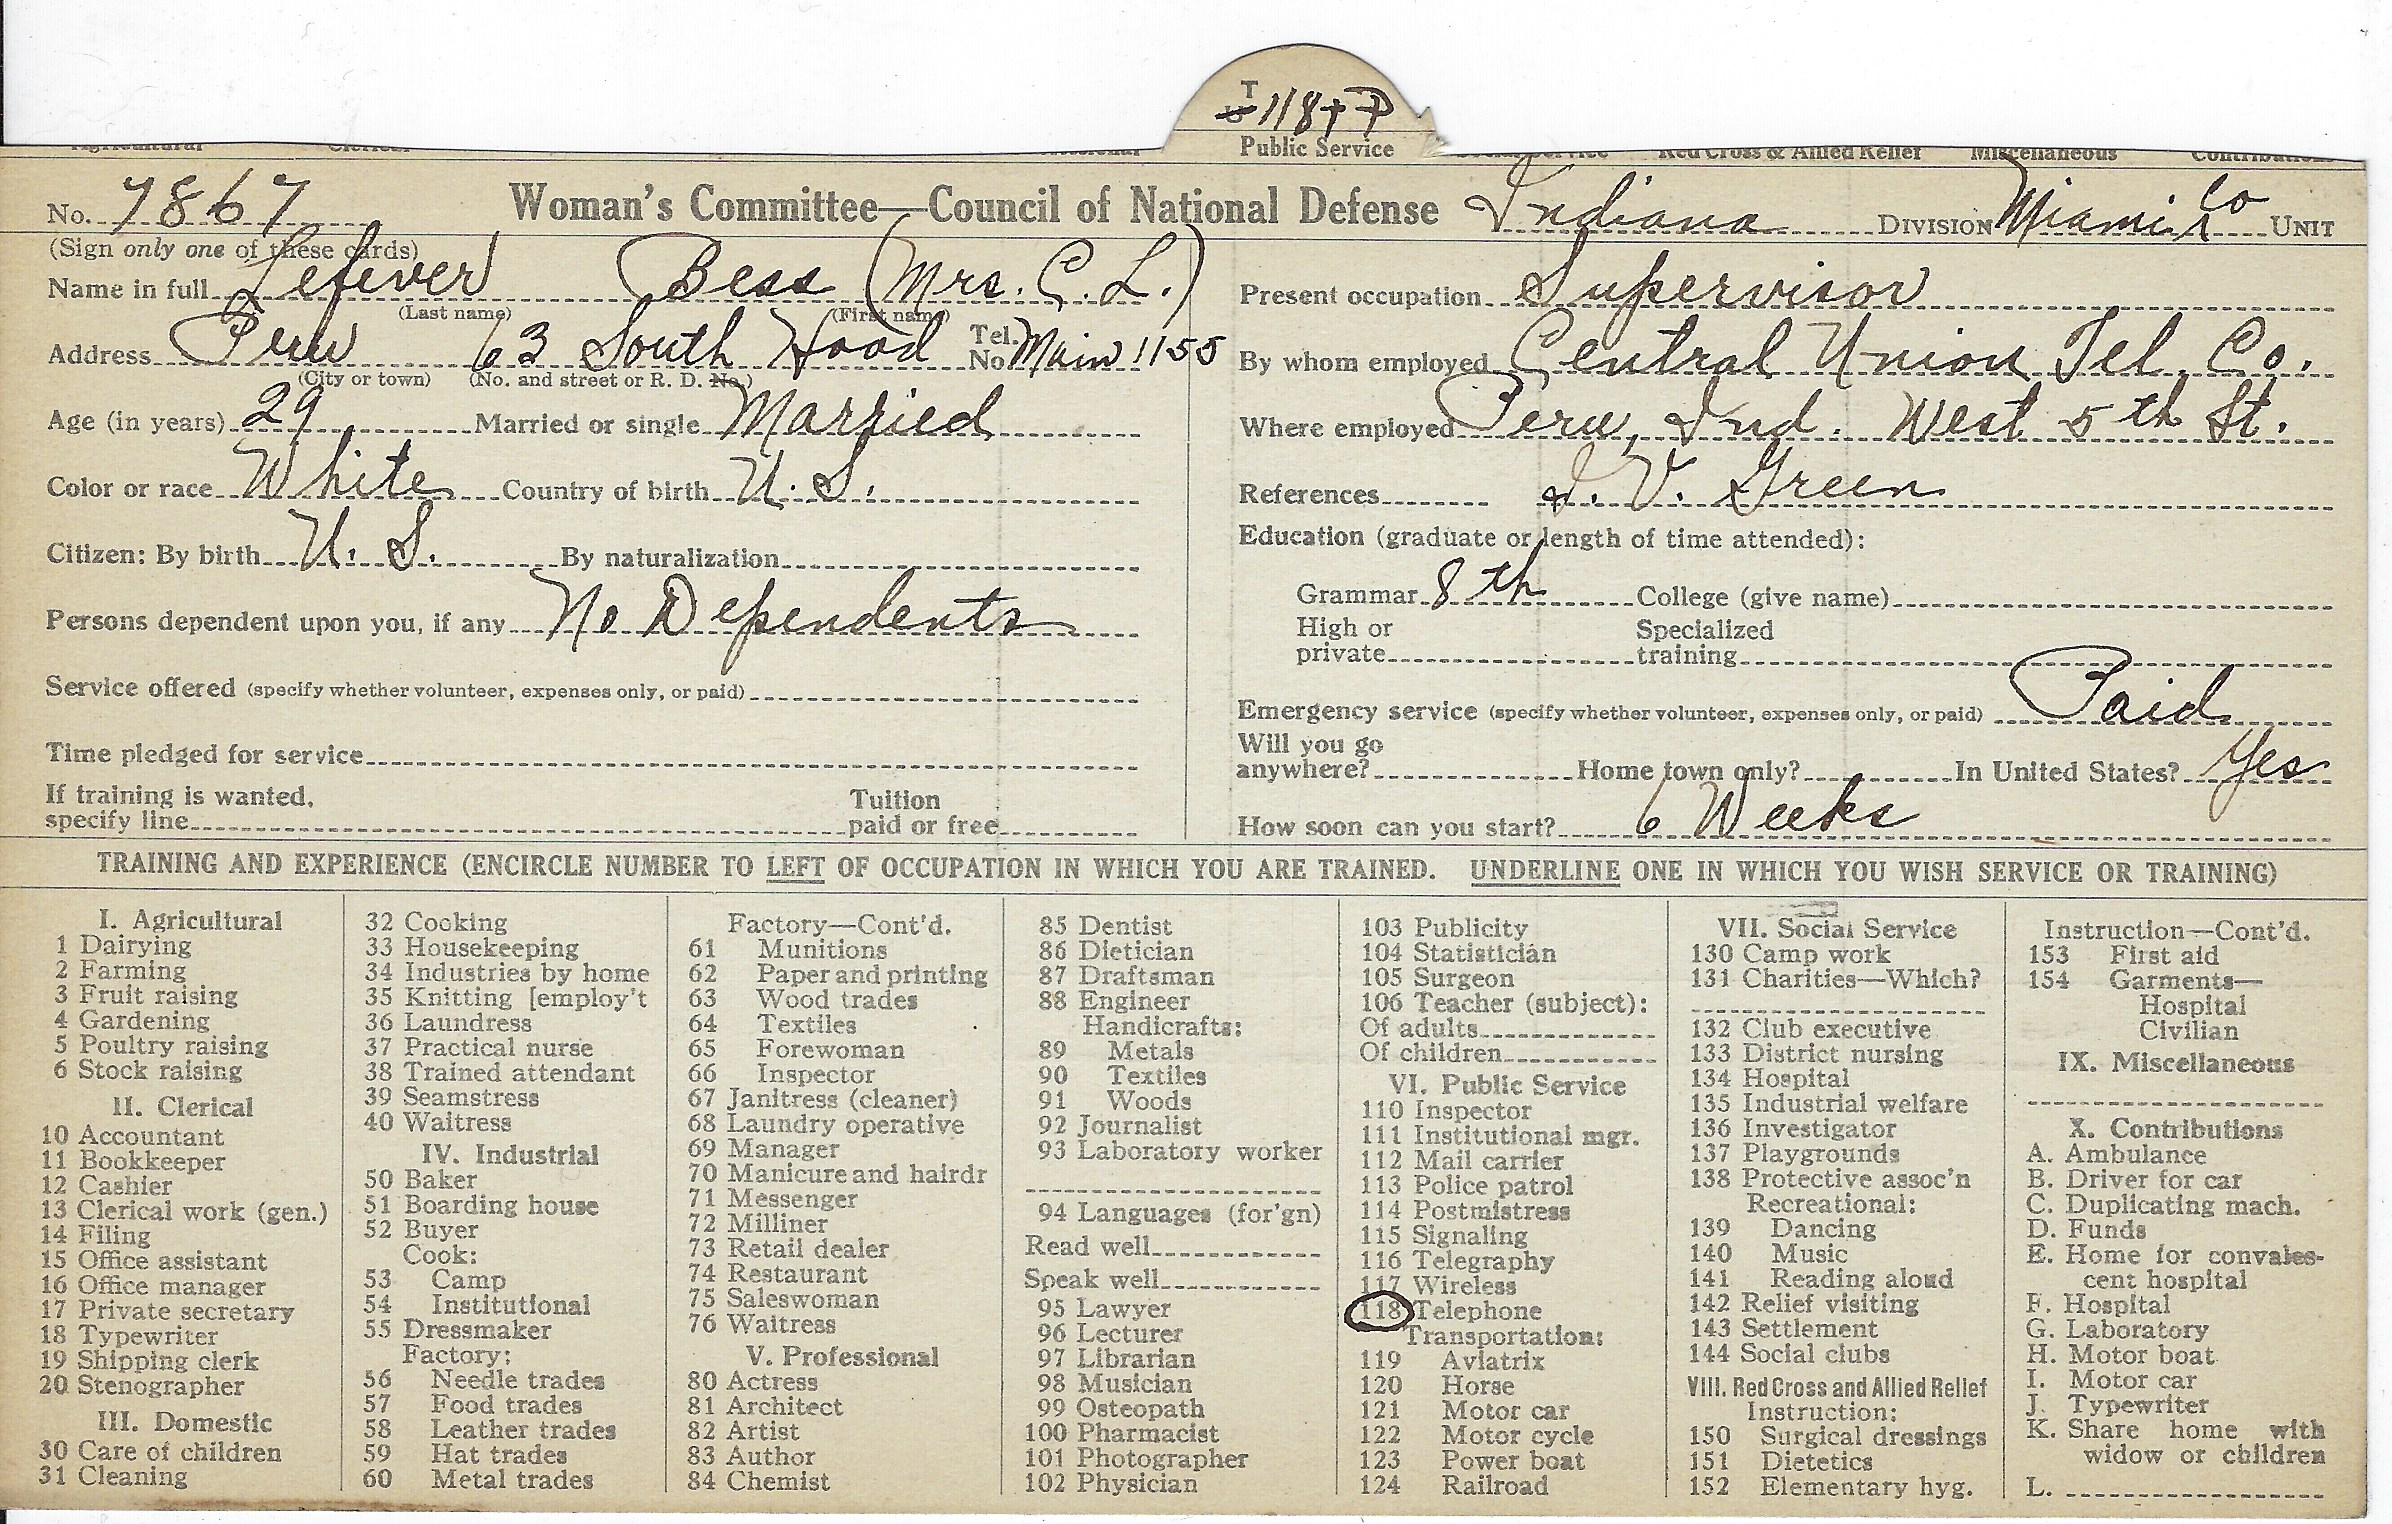 T
118 + P
Public Service
Red Cross & Allied Relief Miscellaneous
No. 7867 Woman's Committee—Council of National Defense Indiana DIVISION Miami Co UNIT
(Sign only one of these cards)
Name in full Lefever Bess (Mrs. C. L.)
(Last name) (First name)
Address Peru 63 South Hood Tel. No. Main 1155
(City or town) (No. and street or R. D. No.)
Age (in years) 29 Married or single Married
Color or race White Country of birth U. S.
Citizen: By birth U. S. By naturalization
Persons dependent upon you, if any No Dependents
Service offered (specify whether volunteer, expenses only, or paid)
Time pledged for service
If training is wanted, specify line Tuition paid or free
Present occupation Supervisor
By whom employed Central Union Tel. Co.
Where employed Peru, Ind. West 5th St.
References V. Green
Education (graduate or length of time attended):
Grammar 8th College (give name)
High or private Specialized training
Emergency service (specify whether volunteer, expenses only, or paid) Paid
Will you go anywhere? Home town only? In United States? Yes
How soon can you start? 6 Weeks
TRAINING AND EXPERIENCE (ENCIRCLE NUMBER TO LEFT OF OCCUPATION IN WHICH YOU ARE TRAINED. UNDERLINE ONE IN WHICH YOU WISH SERVICE OR TRAINING)
I. Agricultural
1 Dairying
2 Farming
3 Fruit raising
4 Gardening
5 Poultry raising
6 Stock raising
II. Clerical
10 Accountant
11 Bookkeeper
12 Cashier
13 Clerical work (gen.)
14 Filing
15 Office assistant
16 Office manager
17 Private secretary
18 Typewriter
19 Shipping clerk
20 Stenographer
III. Domestic
30 Care of children
31 Cleaning
32 Cooking
33 Housekeeping
34 Industries by home
35 Knitting [employ't
36 Laundress
37 Practical nurse
38 Trained attendant
39 Seamstress
40 Waitress
IV. Industrial
50 Baker
51 Boarding house
52 Buyer
Cook:
53 Camp
54 Institutional
55 Dressmaker
Factory:
56 Needle trades
57 Food trades
58 Leather trades
59 Hat trades
60 Metal trades
Factory—Cont'd.
61 Munitions
62 Paper and printing
63 Wood trades
64 Textiles
65 Forewoman
66 Inspector
67 Janitress (cleaner)
68 Laundry operative
69 Manager
70 Manicure and hairdr
71 Messenger
72 Milliner
73 Retail dealer
74 Restaurant
75 Saleswoman
76 Waitress
V. Professional
80 Actress
81 Architect
82 Artist
83 Author
84 Chemist
85 Dentist
86 Dietician
87 Draftsman
88 Engineer
Handicrafts:
89 Metals
90 Textiles
91 Woods
92 Journalist
93 Laboratory worker
94 Languages (for'gn)
Read well
Speak well
95 Lawyer
96 Lecturer
97 Librarian
98 Musician
99 Osteopath
100 Pharmacist
101 Photographer
102 Physician
103 Publicity
104 Statistician
105 Surgeon
106 Teacher (subject):
Of adults
Of children
VI. Public Service
110 Inspector
111 Institutional mgr.
112 Mail carrier
113 Police patrol
114 Postmistress
115 Signaling
116 Telegraphy
117 Wireless
118 Telephone
Transportation:
119 Aviatrix
120 Horse
121 Motor car
122 Motor cycle
123 Power boat
124 Railroad
VII. Social Service
130 Camp work
131 Charities—Which?
132 Club executive
133 District nursing
134 Hospital
135 Industrial welfare
136 Investigator
137 Playgrounds
138 Protective assoc'n
Recreational:
139 Dancing
140 Music
141 Reading aloud
142 Relief visiting
143 Settlement
144 Social clubs
VIII. Red Cross and Allied Relief
Instruction:
150 Surgical dressings
151 Dietetics
152 Elementary hyg.
Instruction—Cont'd.
153 First aid
154 Garments—
Hospital
Civilian
IX. Miscellaneous
X. Contributions
A. Ambulance
B. Driver for car
C. Duplicating mach.
D. Funds
E. Home for convales-
cent hospital
F. Hospital
G. Laboratory
H. Motor boat
I. Motor car
J. Typewriter
K. Share home with
widow or children
L.